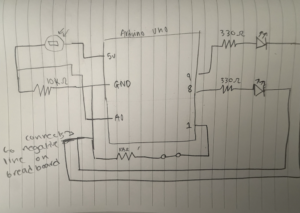 Arduino uno
5v
330Ω
9
GND
8
330Ω
10kΩ
A1
1
connects
to negative
line on
breadboard